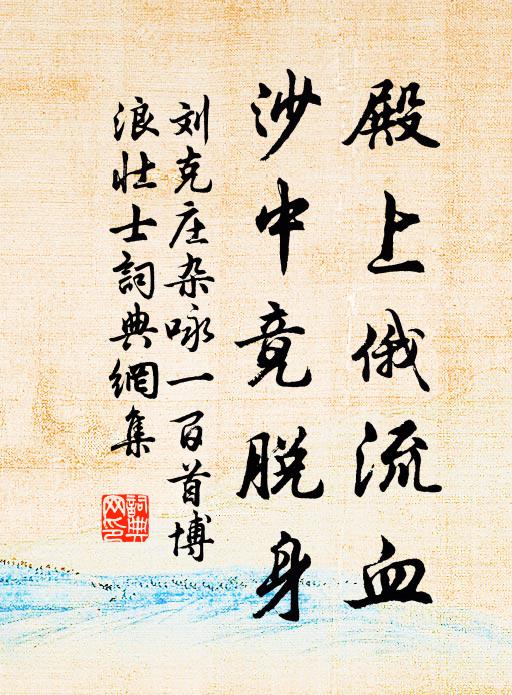 殿上俄流血
沙中竟脱身
刘克庄杂咏一百首博
浪壮士詞典網集
詞典
网印